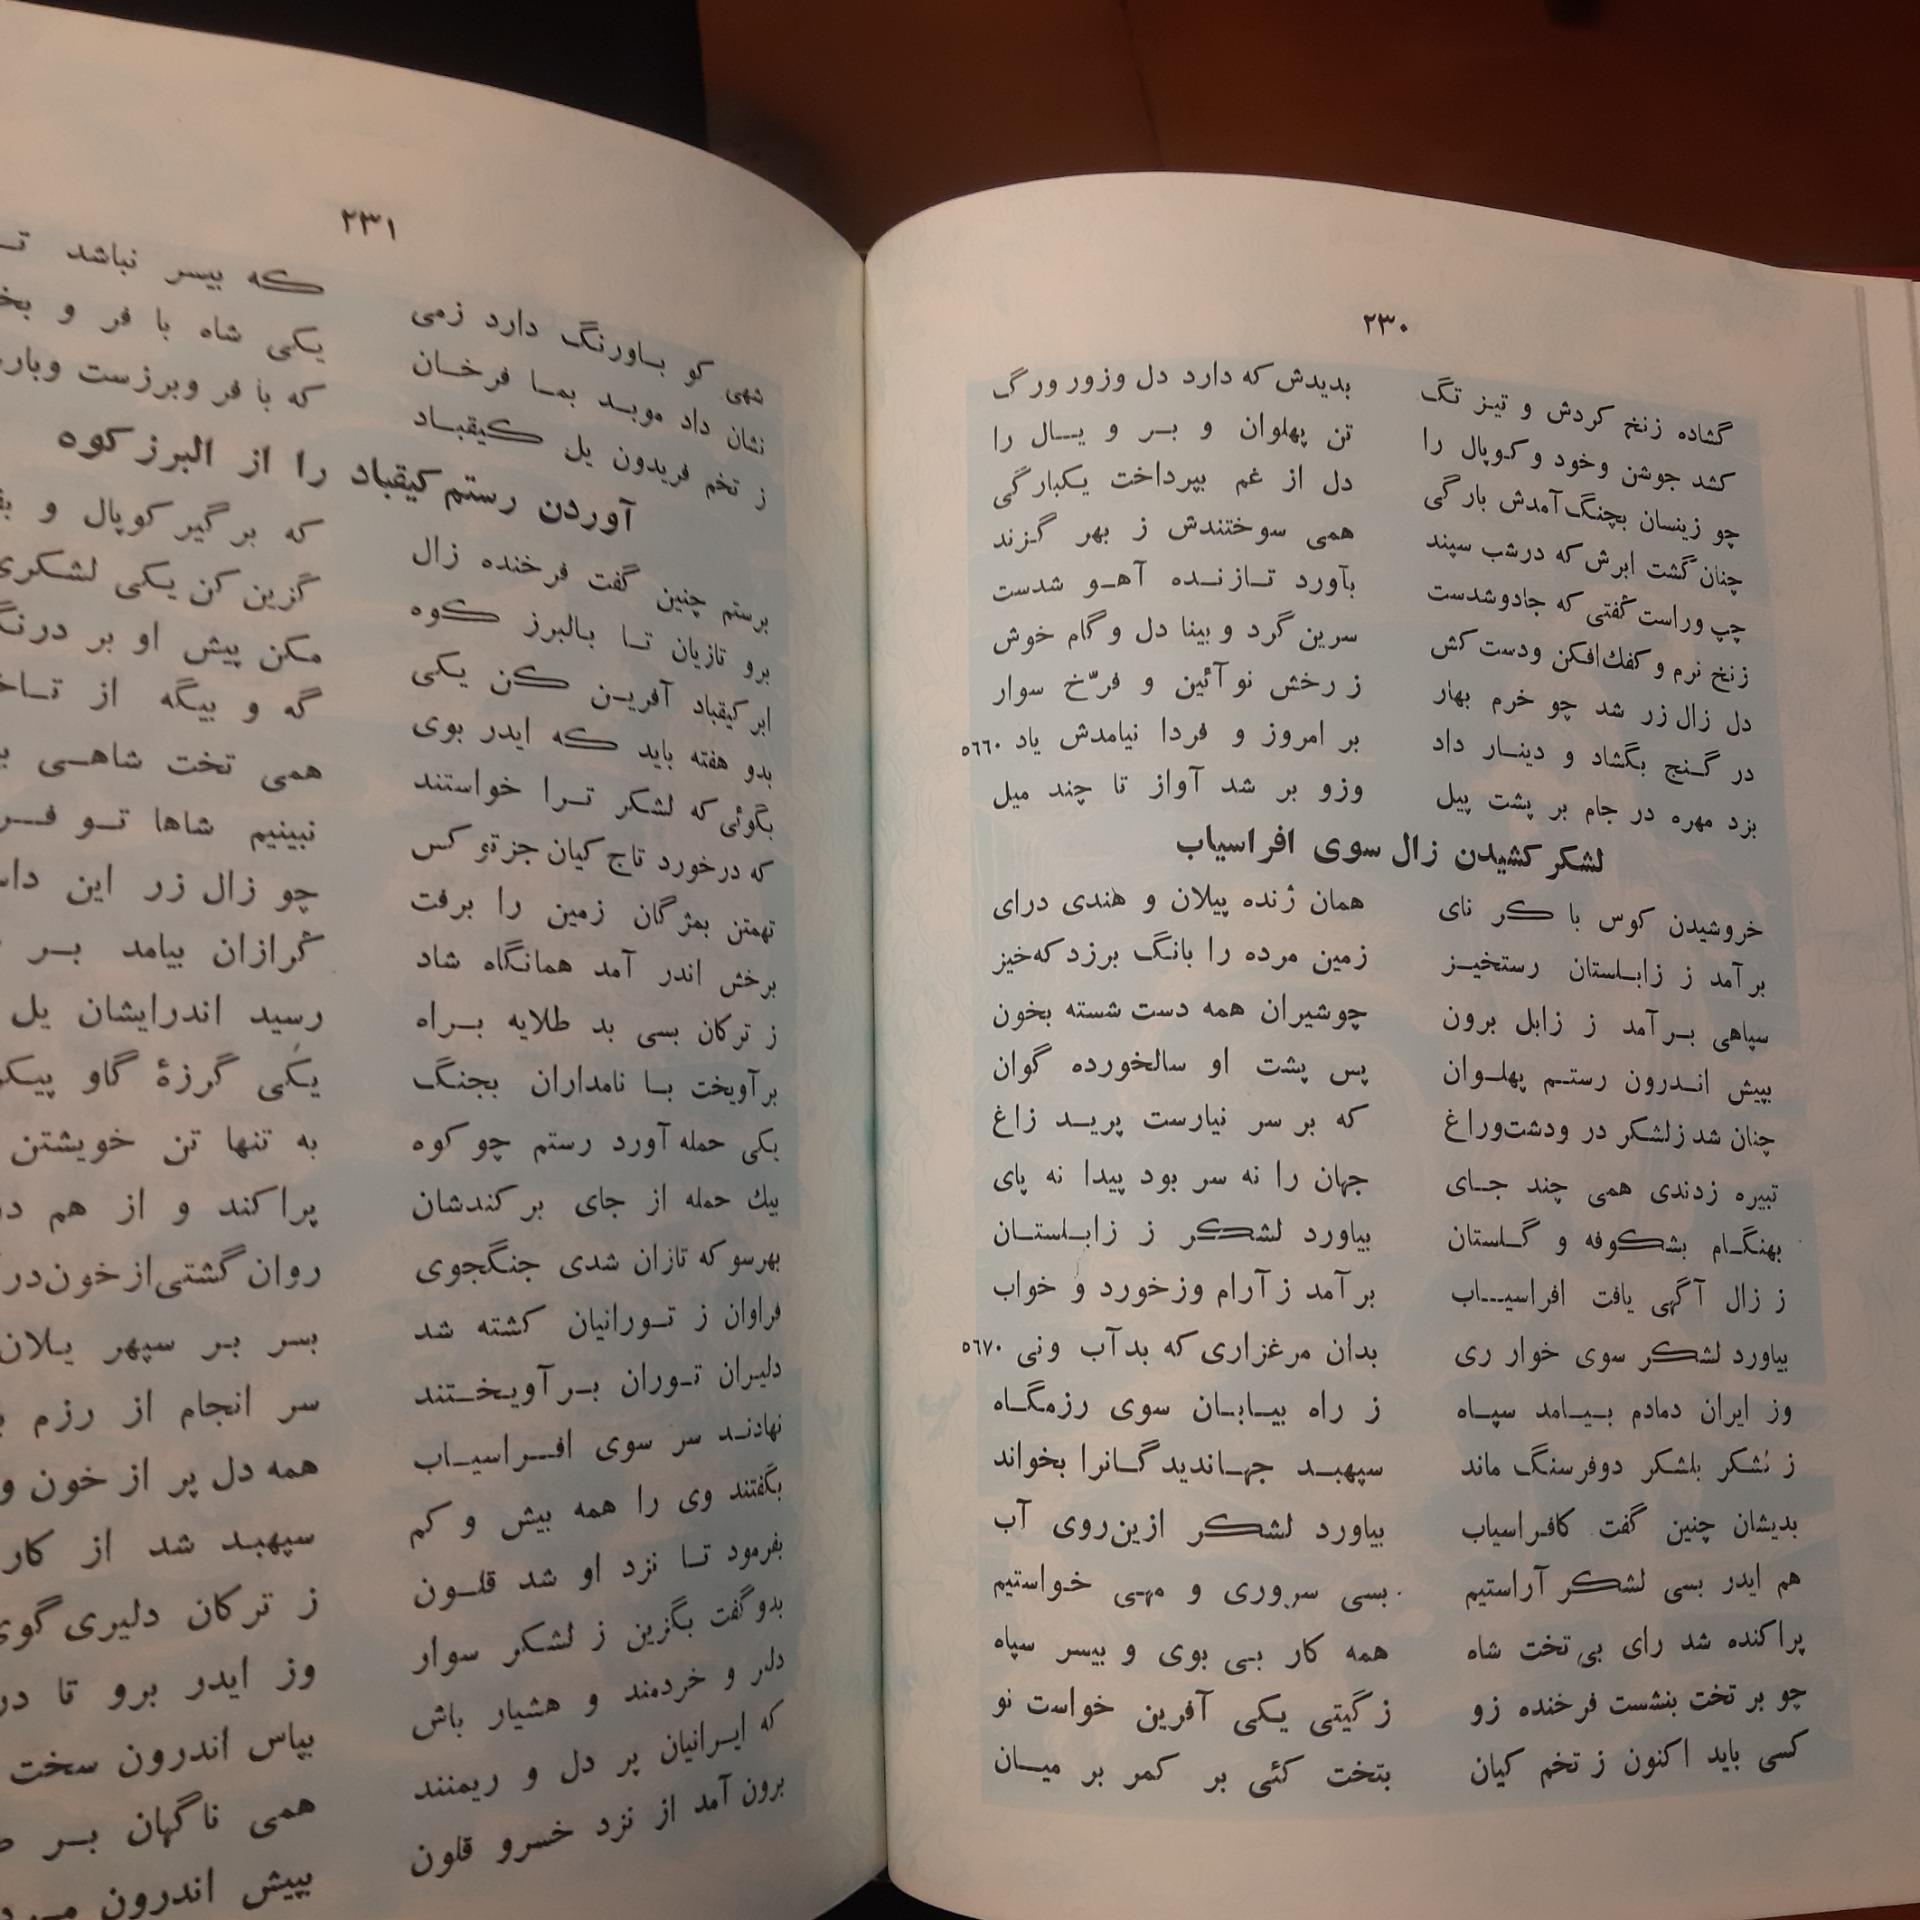 ۲۳۰
گشاده زنخ کردش و تیز تگ بدیدش که دارد دل وزور ورگ
کشد جوشن وخود و کوپال را تن پهلوان و بر و یال را
چو زینسان بچنگ آمدش بارگی دل از غم بپرداخت یکبارگی
چنان گشت ابرش که درشب سپند همی سوختندش ز بهر گزند
چپ وراست گفتی که جادوشدست بآورد تازنده آهو شدست
زنخ نرم و کفك افکن ودست کش سرین گرد و بینا دل و گام خوش
دل زال زر شد چو خرم بهار ز رخش نو آئین و فرّخ سوار
در گنج بگشاد و دینار داد بر امروز و فردا نیامدش یاد ۵٦٦۰
بزد مهره در جام بر پشت پیل وزو بر شد آواز تا چند میل
لشکر کشیدن زال سوی افراسیاب
خروشیدن کوس با کر نای همان ژنده پیلان و هندی درای
بر آمد ز زابلستان رستخیز زمین مرده را بانگ برزد که خیز
سپاهی برآمد ز زابل برون چوشیران همه دست شسته بخون
بپیش اندرون رستم پهلوان پس پشت او سالخورده گوان
چنان شد زلشکر در ودشت وراغ که بر سر نیارست پرید زاغ
تبیره زدندی همی چند جای جهان را نه سر بود پیدا نه پای
بهنگام بشکوفه و گلستان بیاورد لشکر ز زابلستان
ز زال آگهی یافت افراسیاب بر آمد ز آرام وز خورد و خواب
بیاورد لشکر سوی خوار ری بدان مرغزاری که بد آب ونی ۵٦۷۰
وز ایران دمادم بیامد سپاه ز راه بیابان سوی رزمگاه
ز لشکر بلشکر دوفرسنگ ماند سپهبد جهاندیدگانرا بخواند
بدیشان چنین گفت کافراسیاب بیاورد لشکر ازین روی آب
هم ایدر بسی لشکر آراستیم بسی سروری و مهی خواستیم
پراکنده شد رای بی تخت شاه همه کار بی بوی و بیسر سپاه
چو بر تخت بنشست فرخنده زو ز گیتی یکی آفرین خواست نو
کسی باید اکنون ز تخم کیان بتخت کئی بر کمر بر میان
۲۳۱
شهی کو باورنگ دارد زمی که بیسر نباشد
نشان داد موبد بما فرخان یکی شاه با فر و
ز تخم فریدون یل کیقباد که با فر وبرزست
آوردن رستم کیقباد را از البرز کوه
برستم چنین گفت فرخنده زال که بر گیر کوپال و
برو تازیان تا بالبرز کوه گزین کن یکی لشکری
ابر کیقباد آفرین کن یکی مکن پیش او بر
بدو هفته باید که ایدر بوی گه و بیگه از
بگوئی که لشکر ترا خواستند همی تخت شاهی
که درخورد تاج کیان جز تو کس نبینیم شاها تو
تهمتن بمژگان زمین را برفت چو زال زر این
برخش اندر آمد همانگاه شاد گرازان بیامد بر
ز ترکان بسی بد طلایه براه رسید اندرایشان یل
بر آویخت با نامداران بجنگ یکی گرزهٔ گاو
یکی حمله آورد رستم چو کوه به تنها تن خویشتن
بیك حمله از جای بر کندشان پراکند و از هم
بهرسو که تازان شدی جنگجوی روان گشتی از خون
فراوان ز تورانیان کشته شد بسر بر سپهر یلان
دلیران توران بر آویختند سر انجام از رزم
نهادند سر سوی افراسیاب همه دل پر از خون و
بگفتند وی را همه بیش و کم سپهبد شد از کار
بفرمود تا نزد او شد قلون ز ترکان دلیری
بدو گفت بگزین ز لشکر سوار وز ایدر برو تا
دلیر و خردمند و هشیار باش بپاس اندرون سخت
که ایرانیان پر دل و ریمنند همی ناگهان بر
برون آمد از نزد خسرو قلون بپیش اندرون